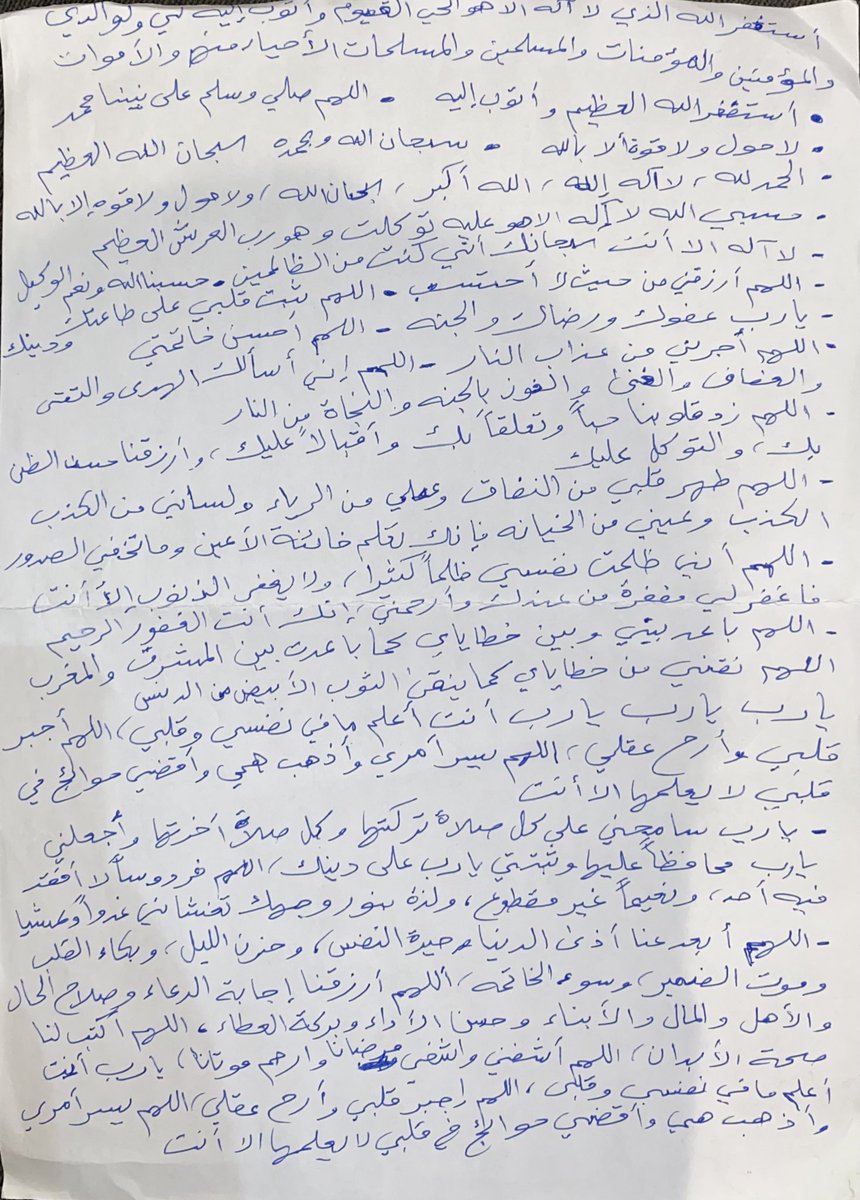 أستغفر الله الذي لا آله الا هو الحي القيوم وأتوب إليه لي ولوالدي
والمؤمنين والمؤمنات والمسلمين والمسلمات الأحياء منهم والأموات
• أستغفر الله العظيم وأتوب إليه • اللهم صلي وسلم على نبينا محمد
• لا حول ولا قوة ألا بالله • سبحان الله وبحمده سبحان الله العظيم
- الحمد لله، لا آله إلا الله، الله أكبر، سبحان الله، ولا حول ولا قوه إلا بالله
- حسبي الله لا إله الا هو عليه توكلت وهو رب العرش العظيم
- لا آله الا أنت سبحانك أني كنت من الظالمين - حسبنا الله ونعم الوكيل
- اللهم أرزقني من حيث لا أحتسب - اللهم ثبت قلبي على طاعتك ودينك
- يارب عفوك ورضاك والجنه - اللهم أحسن خاتمتي
- اللهم أجرني من عذاب النار - اللهم إني أسألك الهدى والتقى
والعفاف والغنى والفوز بالجنه والنجاة من النار
- اللهم زد قلوبنا حباً وتعلقاً بك وأقبالاً عليك، وأرزقنا حسن الظن
بك، والتوكل عليك
- اللهم طهر قلبي من النفاق وعملي من الرياء ولساني من الكذب
الكذب وعيني من الخيانه فإنك تعلم خائنة الأعين وما تخفي الصدور
- اللهم أني ظلمت نفسي ظلماً كثيرا، ولا يغفر الذنوب إلا أنت
فاغفر لي مغفرة من عندك وأرحمني، إنك أنت الغفور الرحيم
- اللهم باعد بيني وبين خطاياي كما باعدت بين المشرق والمغرب
اللهم نقني من خطاياي كما ينقى الثوب الأبيض من الدنس
يارب يارب يارب أنت أعلم ما في نفسي وقلبي، اللهم أجبر
قلبي وأرح عقلي، اللهم يسر أمري وأذهب همي وأقضي حوائج في
قلبي لا يعلمها الا أنت
- يارب سامحني على كل صلاة تركتها وكل صلاة أخرتها وأجعلني
يارب محافظاً عليها وثبتني يارب على دينك، اللهم فردوساً لا أفقد
فيه أحد، ونعيماً غير مقطوع، ولذة بنور وجهك تغشاني غدواً وعشيا
- اللهم أبعد عنا أذى الدنيا وحيرة النفس، وحزن الليل، وبكاء القلب
وموت الضمير، وسوء الخاتمه، اللهم أرزقنا إجابة الدعاء وصلاح الحال
والأهل والمال والأبناء وحسن الأداء وبركة العطاء، اللهم أكتب لنا
صحة الأبدان، اللهم أشفني واشفى مرضانا وارحم موتانا، يارب أنت
أعلم ما في نفسي وقلبي، اللهم إجبر قلبي وأرح عقلي، اللهم يسر أمري
وأذهب همي وأقضي حوائج في قلبي لا يعلمها الا أنت